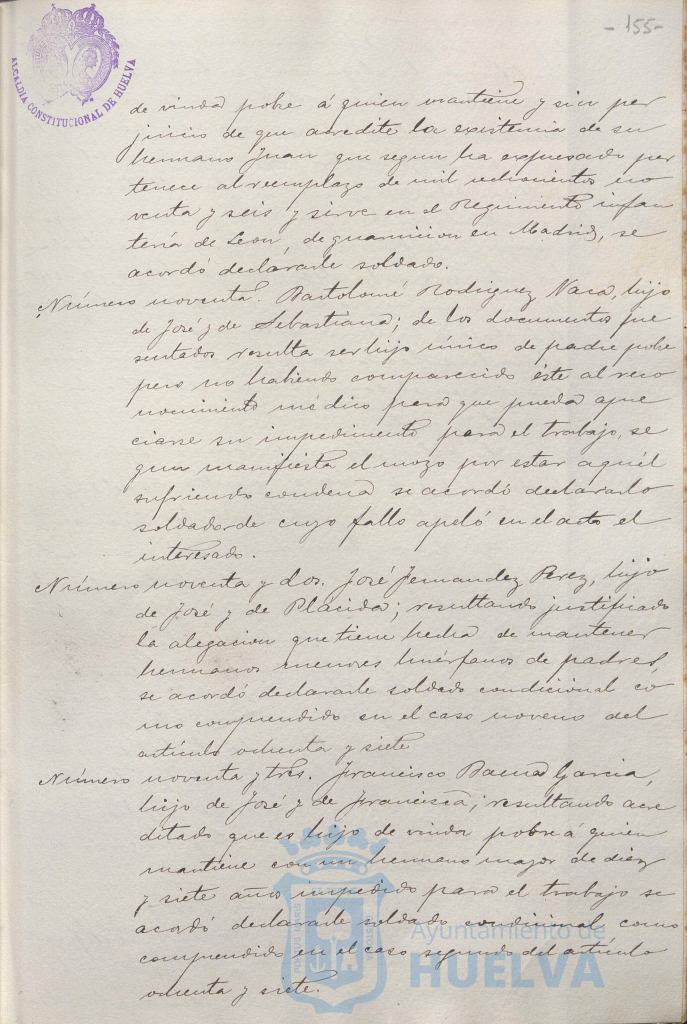 -155-
ALCALDIA CONSTITUCIONAL DE HUELVA
de viuda pobre á quien mantiene y sin per
juicio de que acredite la existencia de su
hermano Juan que segun ha expresado per
tenece al reemplazo de mil ochocientos no
venta y seis y sirve en el Regimiento infan
tería de Leon, de guarnicion en Madrid, se
acordó declararle soldado.
Número noventa. Bartolomé Rodriguez Vaca, hijo
de José y de Sebastiana; de los documentos pre
sentados resulta ser hijo único de padre pobre
pero no habiendo comparecido éste al reco
nocimiento médico para que pueda apre
ciarse su impedimento para el trabajo, se
gun manifiesta el mozo por estar aquél
sufriendo condena se acordó declararlo
soldado de cuyo fallo apeló en el acto el
interesado.
Número noventa y dos. José Fernandez Perez, hijo
de José y de Plácida; resultando justificado
la alegacion que tiene hecha de mantener
hermanos menores huérfanos de padres,
se acordó declararle soldado condicional co
mo comprendido en el caso noveno del
artículo ochenta y siete
Número noventa y tres. Francisco Baena Garcia,
hijo de José y de Francisca; resultando acre
ditado que es hijo de viuda pobre á quien
mantiene con un hermano mayor de diez
y siete años impedido para el trabajo se
acordó declararle soldado condicional como
comprendido en el caso segundo del artículo
ochenta y siete.
Ayuntamiento de
HUELVA